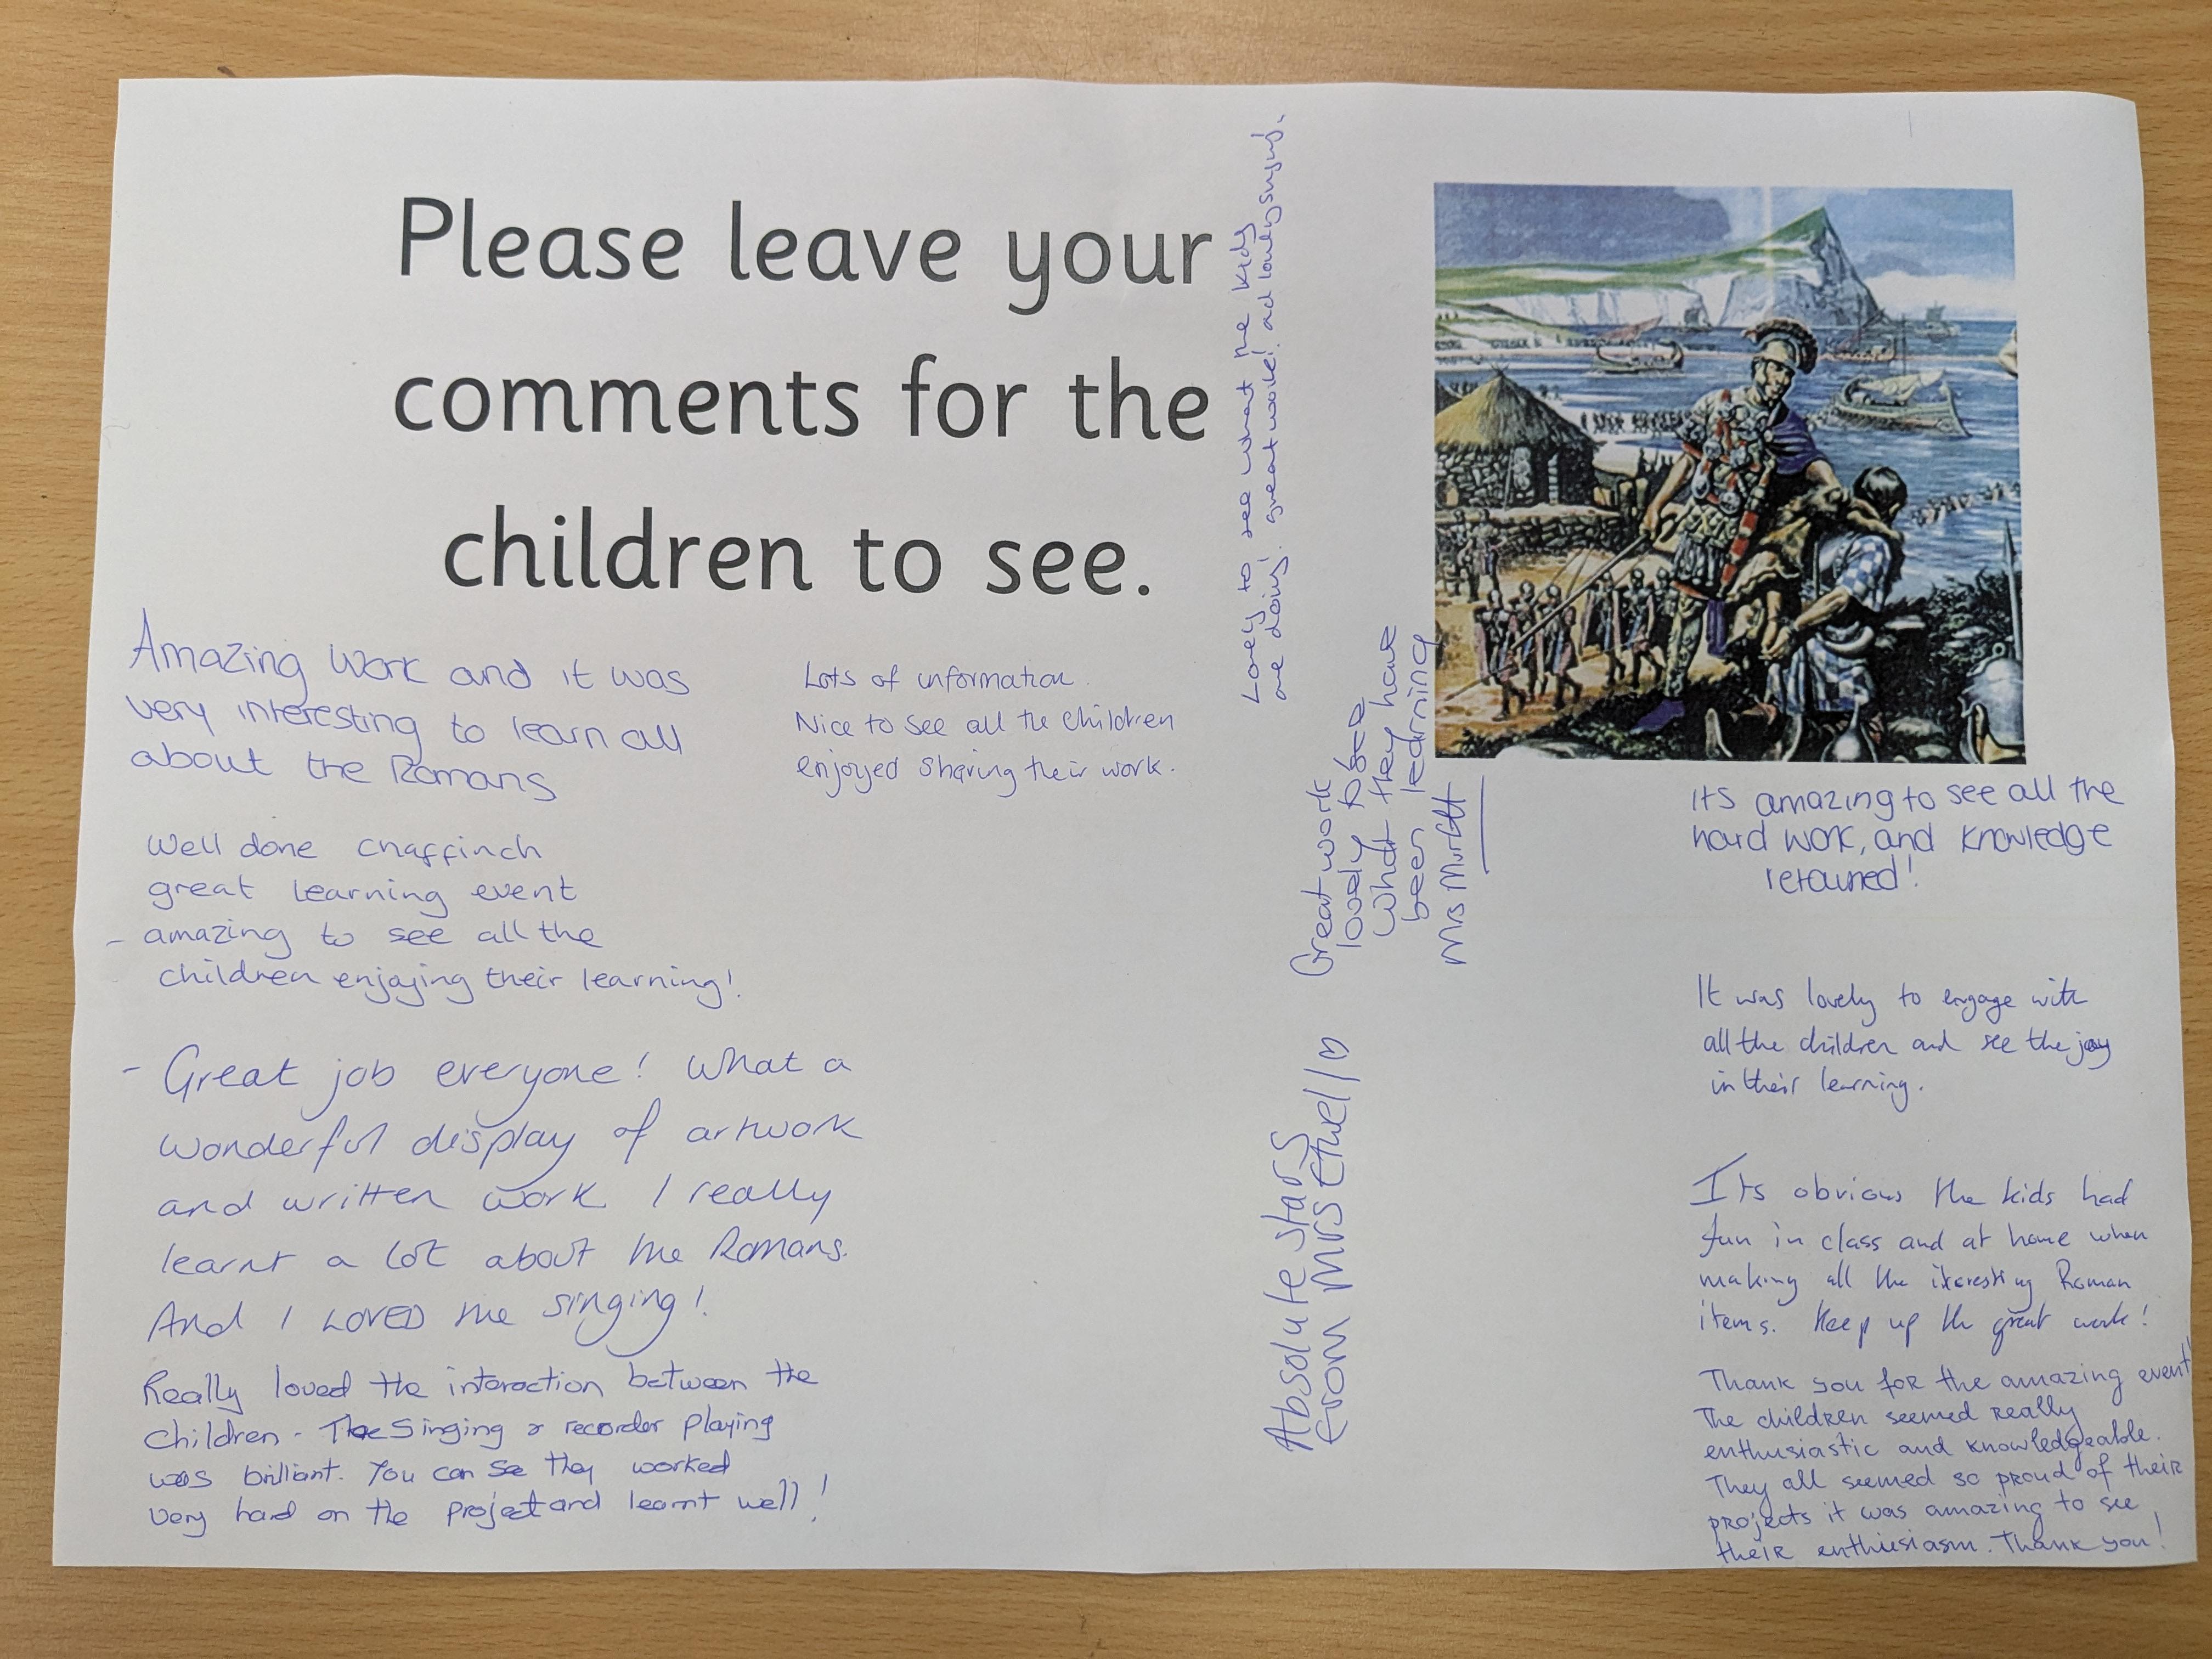 Please leave your
comments for the
children to see.
Amazing work and it was
very interesting to learn all
about the Romans
Lots of information.
Nice to see all the children
enjoyed sharing their work.
Well done chaffinch
great learning event
- amazing to see all the
children enjoying their learning!
- Great job everyone! What a
wonderful display of artwork
and written work. I really
learnt a lot about the Romans.
And I LOVED the singing!
Really loved the interaction between the
children. The singing & recorder playing
was brilliant. You can see they worked
very hard on the project and learnt well!
Lovely to see what the kids
are doing! great work! ad lovely singing.
Great work
lovely to see
what they have
been learning
Mrs
Absolute stars
from Mrs Etwell
Its amazing to see all the
hard work, and knowledge
retained!
It was lovely to engage with
all the children and see the joy
in their learning.
Its obvious the kids had
fun in class and at home when
making all the interesting Roman
items. Keep up the great work!
Thank you for the amazing event
The children seemed really
enthusiastic and knowledgeable.
They all seemed so proud of their
projects it was amazing to see
their enthusiasm. Thank you!